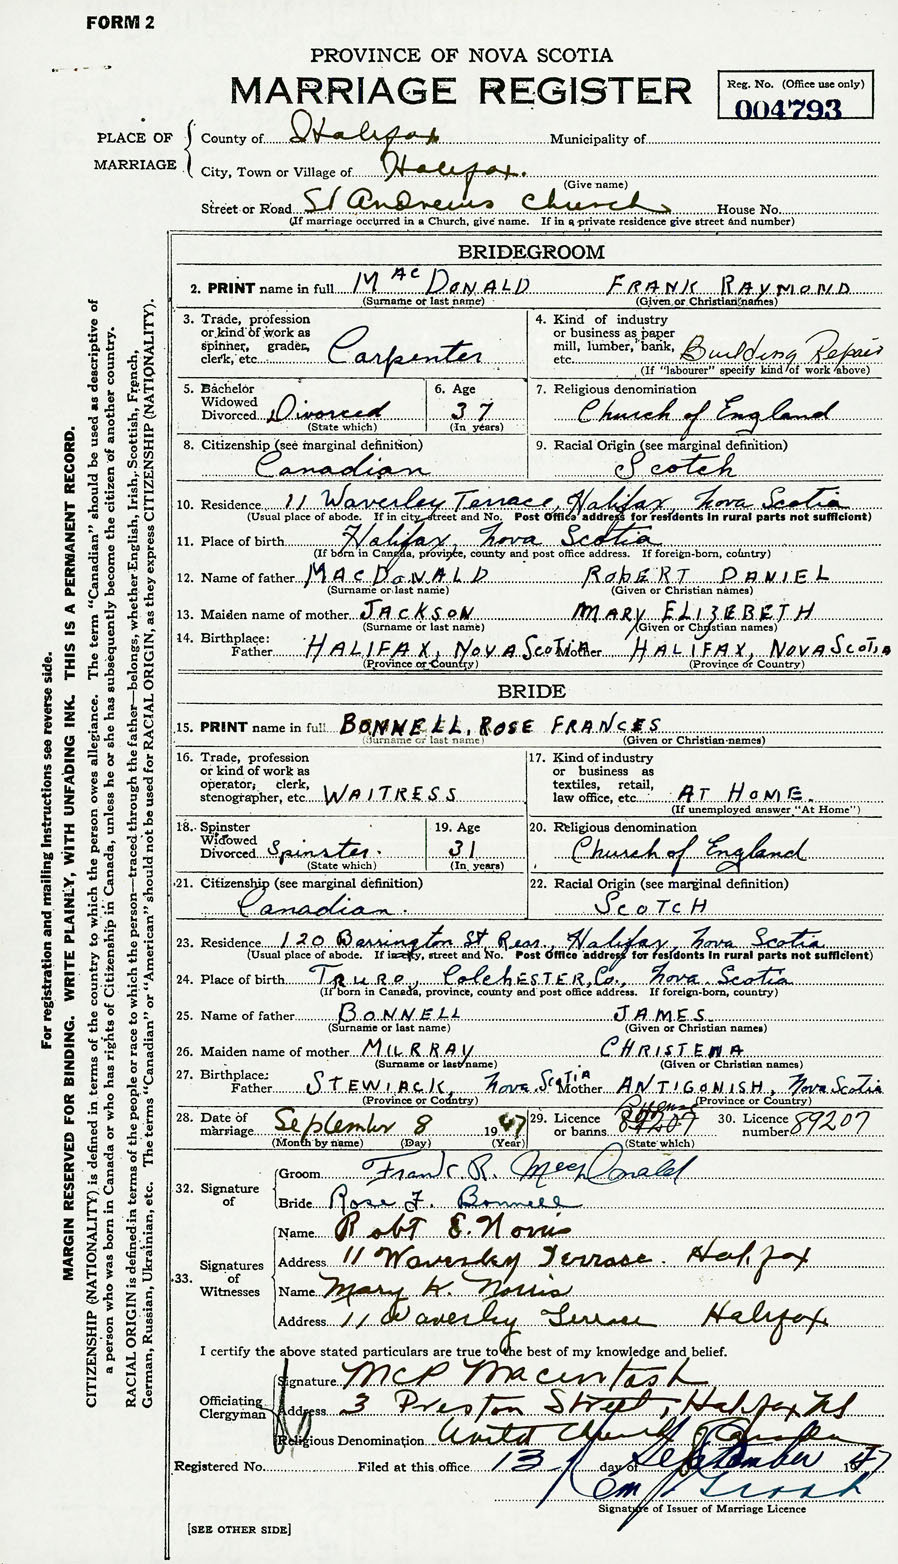 FORM 2
PROVINCE OF NOVA SCOTIA
MARRIAGE REGISTER
Reg. No. (Office use only)
004793
PLACE OF MARRIAGE
County of Halifax Municipality of
City, Town or Village of Halifax.
(Give name)
Street or Road St Andrews Church House No.
(If marriage occurred in a Church, give name. If in a private residence give street and number)
BRIDEGROOM
2. PRINT name in full MacDONALD FRANK RAYMOND
(Surname or last name) (Given or Christian names)
3. Trade, profession or kind of work as spinner, grader, clerk, etc. Carpenter
4. Kind of industry or business as paper mill, lumber, bank, etc. Building Repair
(If "labourer" specify kind of work above)
5. Bachelor Widowed Divorced Divorced
(State which)
6. Age 37
(In years)
7. Religious denomination
Church of England
8. Citizenship (see marginal definition)
Canadian
9. Racial Origin (see marginal definition)
Scotch
10. Residence 11 Waverley Terrace, Halifax, Nova Scotia
(Usual place of abode. If in city, street and No. Post Office address for residents in rural parts not sufficient)
11. Place of birth Halifax, Nova Scotia
(If born in Canada, province, county and post office address. If foreign-born, country)
12. Name of father MACDONALD ROBERT DANIEL
(Surname or last name) (Given or Christian names)
13. Maiden name of mother JACKSON MARY ELIZEBETH
(Surname or last name) (Given or Christian names)
14. Birthplace:
Father HALIFAX, NOVA SCOTIA Mother HALIFAX, NOVA SCOTIA
(Province or Country) (Province or Country)
BRIDE
15. PRINT name in full BONNELL, ROSE FRANCES
(Surname or last name) (Given or Christian names)
16. Trade, profession or kind of work as operator, clerk, stenographer, etc. WAITRESS
17. Kind of industry or business as textiles, retail, law office, etc. AT HOME.
(If unemployed answer "At Home")
18. Spinster Widowed Divorced Spinster.
(State which)
19. Age 31
(In years)
20. Religious denomination
Church of England
21. Citizenship (see marginal definition)
Canadian.
22. Racial Origin (see marginal definition)
SCOTCH
23. Residence 120 Barrington St Rear, Halifax, Nova Scotia
(Usual place of abode. If in city, street and No. Post Office address for residents in rural parts not sufficient)
24. Place of birth TRURO, COLCHESTER, Co., Nova Scotia
(If born in Canada, province, county and post office address. If foreign-born, country)
25. Name of father BONNELL JAMES
(Surname or last name) (Given or Christian names)
26. Maiden name of mother MURRAY CHRISTENA
(Surname or last name) (Given or Christian names)
27. Birthplace:
Father STEWIACK, Nova SCOTIA Mother ANTIGONISH, Nova Scotia
(Province or Country) (Province or Country)
28. Date of marriage September 8 1947
(Month by name) (Day) (Year)
29. Licence or banns
(State which)
30. Licence number 89207
32. Signature of
Groom Frank R. MacDonald
Bride Rose F. Bonnell
33. Signatures of Witnesses
Name Robt E. Norris
Address 11 Waverley Terrace. Halifax
Name Mary K. Norris
Address 11 Waverley Terrace Halifax
I certify the above stated particulars are true to the best of my knowledge and belief.
Officiating Clergyman
Signature McP Macintosh
Address 3 Preston Street, Halifax NS
Religious Denomination United Church of Canada
Registered No. Filed at this office 13 day of September 1947
Signature of Issuer of Marriage Licence
[SEE OTHER SIDE]
For registration and mailing instructions see reverse side.
MARGIN RESERVED FOR BINDING. WRITE PLAINLY, WITH UNFADING INK. THIS IS A PERMANENT RECORD.
CITIZENSHIP (NATIONALITY) is defined in terms of the country to which the person owes allegiance. The term "Canadian" should be used as descriptive of
a person who was born in Canada or who has rights of Citizenship in Canada, unless he or she has subsequently become the citizen of another country.
RACIAL ORIGIN is defined in terms of the people or race to which the person—traced through the father—belongs, whether English, Irish, Scottish, French,
German, Russian, Ukrainian, etc. The terms "Canadian" or "American" should not be used for RACIAL ORIGIN, as they express CITIZENSHIP (NATIONALITY).